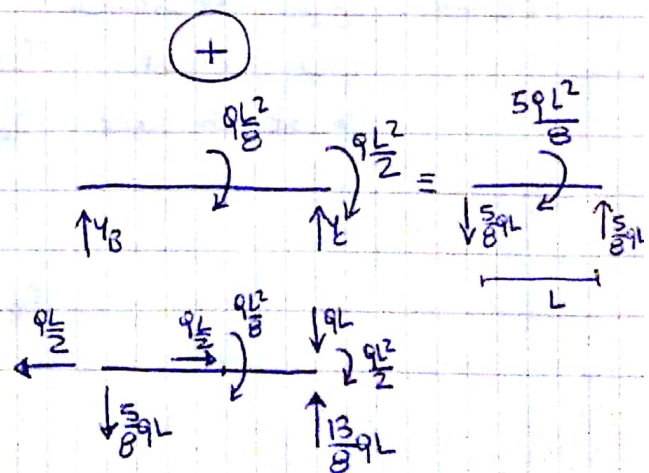 +
qL²/8 qL²/2 ≡ 5qL²/8
Y_B Y_C 5/8 qL 5/8 qL
L
qL/2 qL/2 qL²/8 qL qL²/2
5/8 qL 13/8 qL